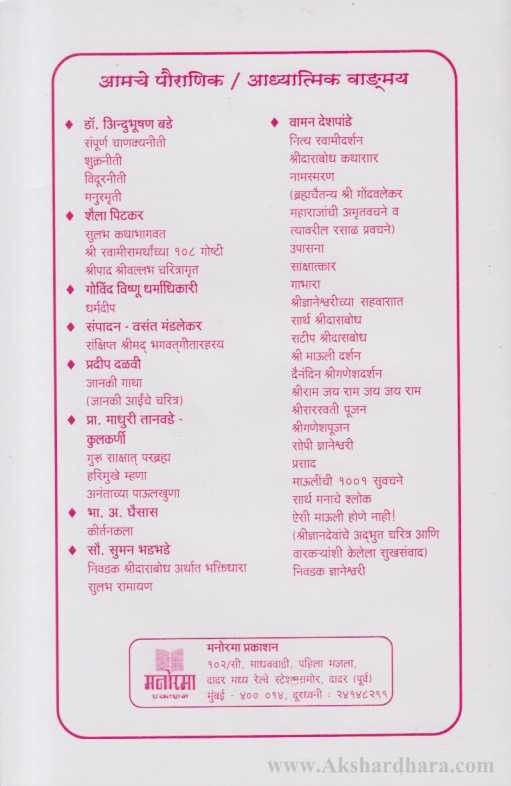 आमचे पौराणिक / आध्यात्मिक वाङ्मय
♦ डॉ. अिन्दुभूषण बडे
संपूर्ण चाणक्यनीती
शुक्रनीती
विदूरनीती
मनुस्मृती
♦ शैला पिटकर
सुलभ कथाभागवत
श्री स्वामीसमर्थांच्या १०८ गोष्टी
श्रीपाद श्रीवल्लभ चरित्रामृत
♦ गोविंद विष्णू धर्माधिकारी
धर्मदीप
♦ संपादन - वसंत मंडलेकर
संक्षिप्त श्रीमद् भगवत्‌गीतारहस्य
♦ प्रदीप दळवी
जानकी गाथा
(जानकी आईंचे चरित्र)
♦ प्रा. माधुरी तानवडे -
कुलकर्णी
गुरू साक्षात् परब्रह्म
हरिमुखे म्हणा
अनंताच्या पाऊलखुणा
♦ भा. अ. घैसास
कीर्तनकला
♦ सौ. सुमन भडभडे
निवडक श्रीदासबोध अर्थात भक्तिधारा
सुलभ रामायण
♦ वामन देशपांडे
नित्य स्वामीदर्शन
श्रीदासबोध कथासार
नामस्मरण
(ब्रह्मचैतन्य श्री गोंदवलेकर
महाराजांची अमृतवचने व
त्यावरील रसाळ प्रवचने)
उपासना
साक्षात्कार
गाभारा
श्रीज्ञानेश्वरीच्या सहवासात
सार्थ श्रीदासबोध
सटीप श्रीदासबोध
श्री माऊली दर्शन
दैनंदिन श्रीगणेशदर्शन
श्रीराम जय राम जय जय राम
श्रीसरस्वती पूजन
श्रीगणेशपूजन
सोपी ज्ञानेश्वरी
प्रसाद
माऊलींची १००१ सुवचने
सार्थ मनाचे श्लोक
ऐसी माऊली होणे नाही!
(श्रीज्ञानदेवांचे अद्‌भुत चरित्र आणि
वारकऱ्यांशी केलेला सुखसंवाद)
निवडक ज्ञानेश्वरी
मनोरमा
प्रकाशन
मनोरमा प्रकाशन
१०२/सी, माधववाडी, पहिला मजला,
दादर मध्य रेल्वे स्टेशनसमोर, दादर (पूर्व)
मुंबई - ४०० ०१४, दूरध्वनी : २४१४८२९९
www.Akshardhara.com